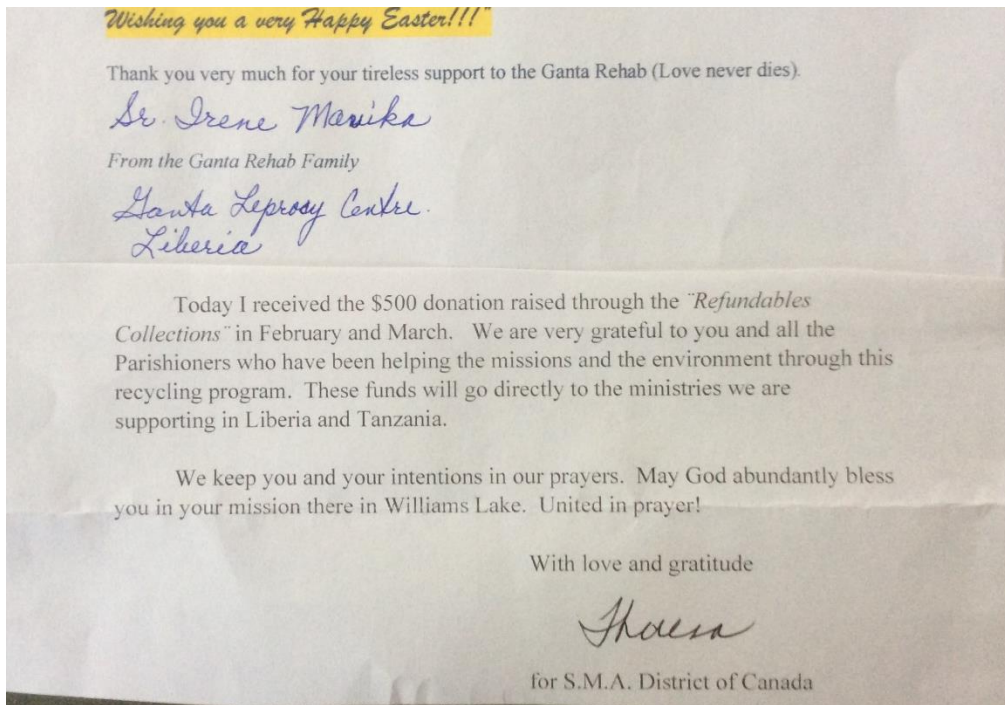 Wishing you a very Happy Easter!!!"
Thank you very much for your tireless support to the Ganta Rehab (Love never dies).
Sr. Irene Manika
From the Ganta Rehab Family
Ganta Leprosy Centre.
Liberia
Today I received the $500 donation raised through the ¨Refundables
Collections¨ in February and March. We are very grateful to you and all the
Parishioners who have been helping the missions and the environment through this
recycling program. These funds will go directly to the ministries we are
supporting in Liberia and Tanzania.
We keep you and your intentions in our prayers. May God abundantly bless
you in your mission there in Williams Lake. United in prayer!
With love and gratitude
for S.M.A. District of Canada